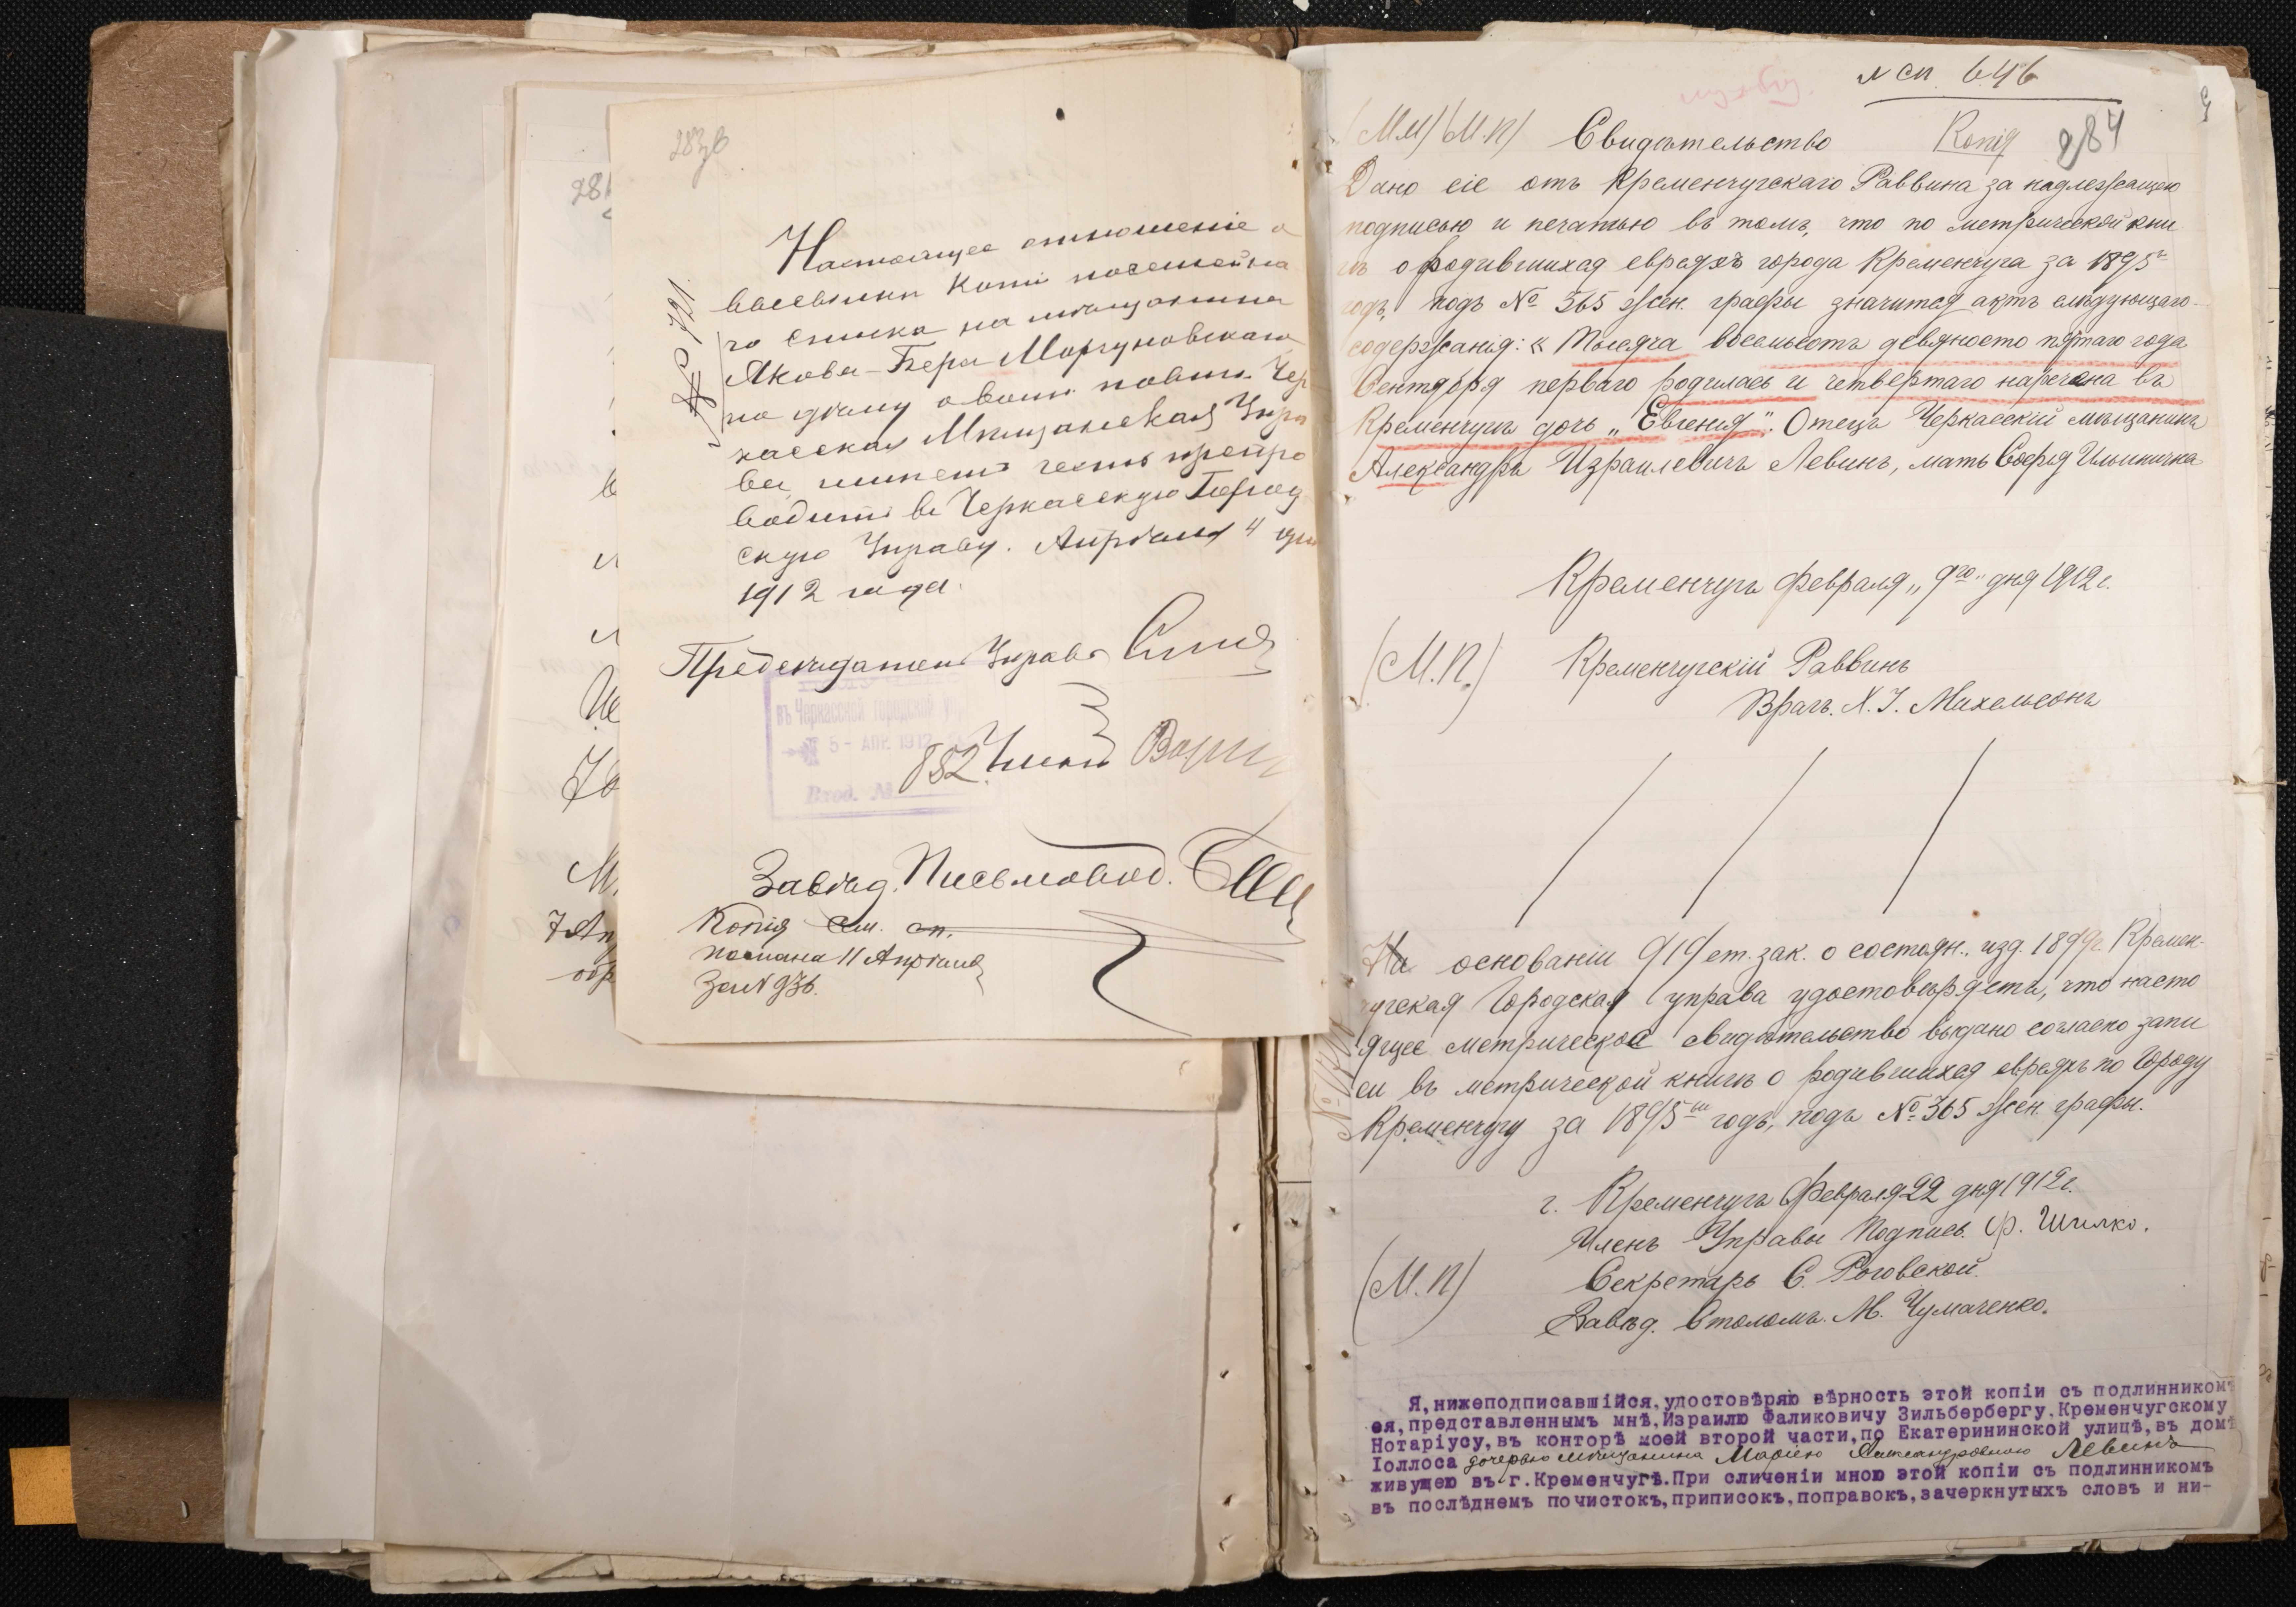 283об
281
№ 721
Настоящее отношеніе о
высылки копіи посемейна
го списка на мѣщанина
Якова-Бера Моргуновскаго
по дѣлу о воин. повин. Чер
касская Мѣщанская Упра
ва имѣетъ честь препро
водить въ Черкасскую Город
скую Управу. Апрѣля 4 дня
1912 года.
Предсѣдатель Управы
въ Черкасской городской
5 - АПР. 1912
Вход. № 852
Членъ
Завѣд. Письмовод.
Копія сем. сп.
послана 11 Апрѣля
за № 936.
7 Ап
№ сп. 646
284
(М.М) (М.П) Свидѣтельство Копія
Дано сіе отъ Кременчугскаго Раввина за надлежащею
подписью и печатью въ томъ, что по метрической кни
гѣ о родившихся евреяхъ города Кременчуга за 1895й
годъ, подъ № 365 жен. графы значится актъ слѣдующаго
содержанія: "Тысяча восемьсотъ девяносто пятаго года
Сентября перваго родилась и четвертаго наречена въ
Кременчугѣ дочь "Евгенія". Отецъ Черкасскій мѣщанинъ
Александръ Израилевичъ Левинъ, мать Софья Ильинична
Кременчугъ Февраля "9го" дня 1912 г.
(М.П.) Кременчугскій Раввинъ
Врачъ. Х. І. Михельсонъ
На основаніи 919 ст. зак. о состоян., изд. 1899 г. Кремен-
чугская Городская управа удостовѣряетъ, что насто
ящее метрическое свидѣтельство выдано согласно запи
си въ метрической книгѣ о родившихся евреяхъ по Городу
Кременчугу за 1895ый годъ, подъ № 365 жен. графы.
г. Кременчугъ Февраля 22 дня 1912 г.
Членъ Управы Подпись Ф. Шилко.
(М.П) Секретарь С. Роговской.
Завѣд. Столомъ. М. Чумаченко.
Я, нижеподписавшійся, удостовѣряю вѣрность этой копіи съ подлинникомъ
ея, представленнымъ мнѣ, Израилю Фаликовичу Зильбербергу, Кременчугскому
Нотаріусу, въ конторѣ моей второй части, по Екатерининской улицѣ, въ домѣ
Іоллоса дочерью мѣщанина Маріею Александровною Левинъ
живущею въ г. Кременчугѣ. При сличеніи мною этой копіи съ подлинникомъ
въ послѣднемъ почистокъ, приписокъ, поправокъ, зачеркнутыхъ словъ и ни-